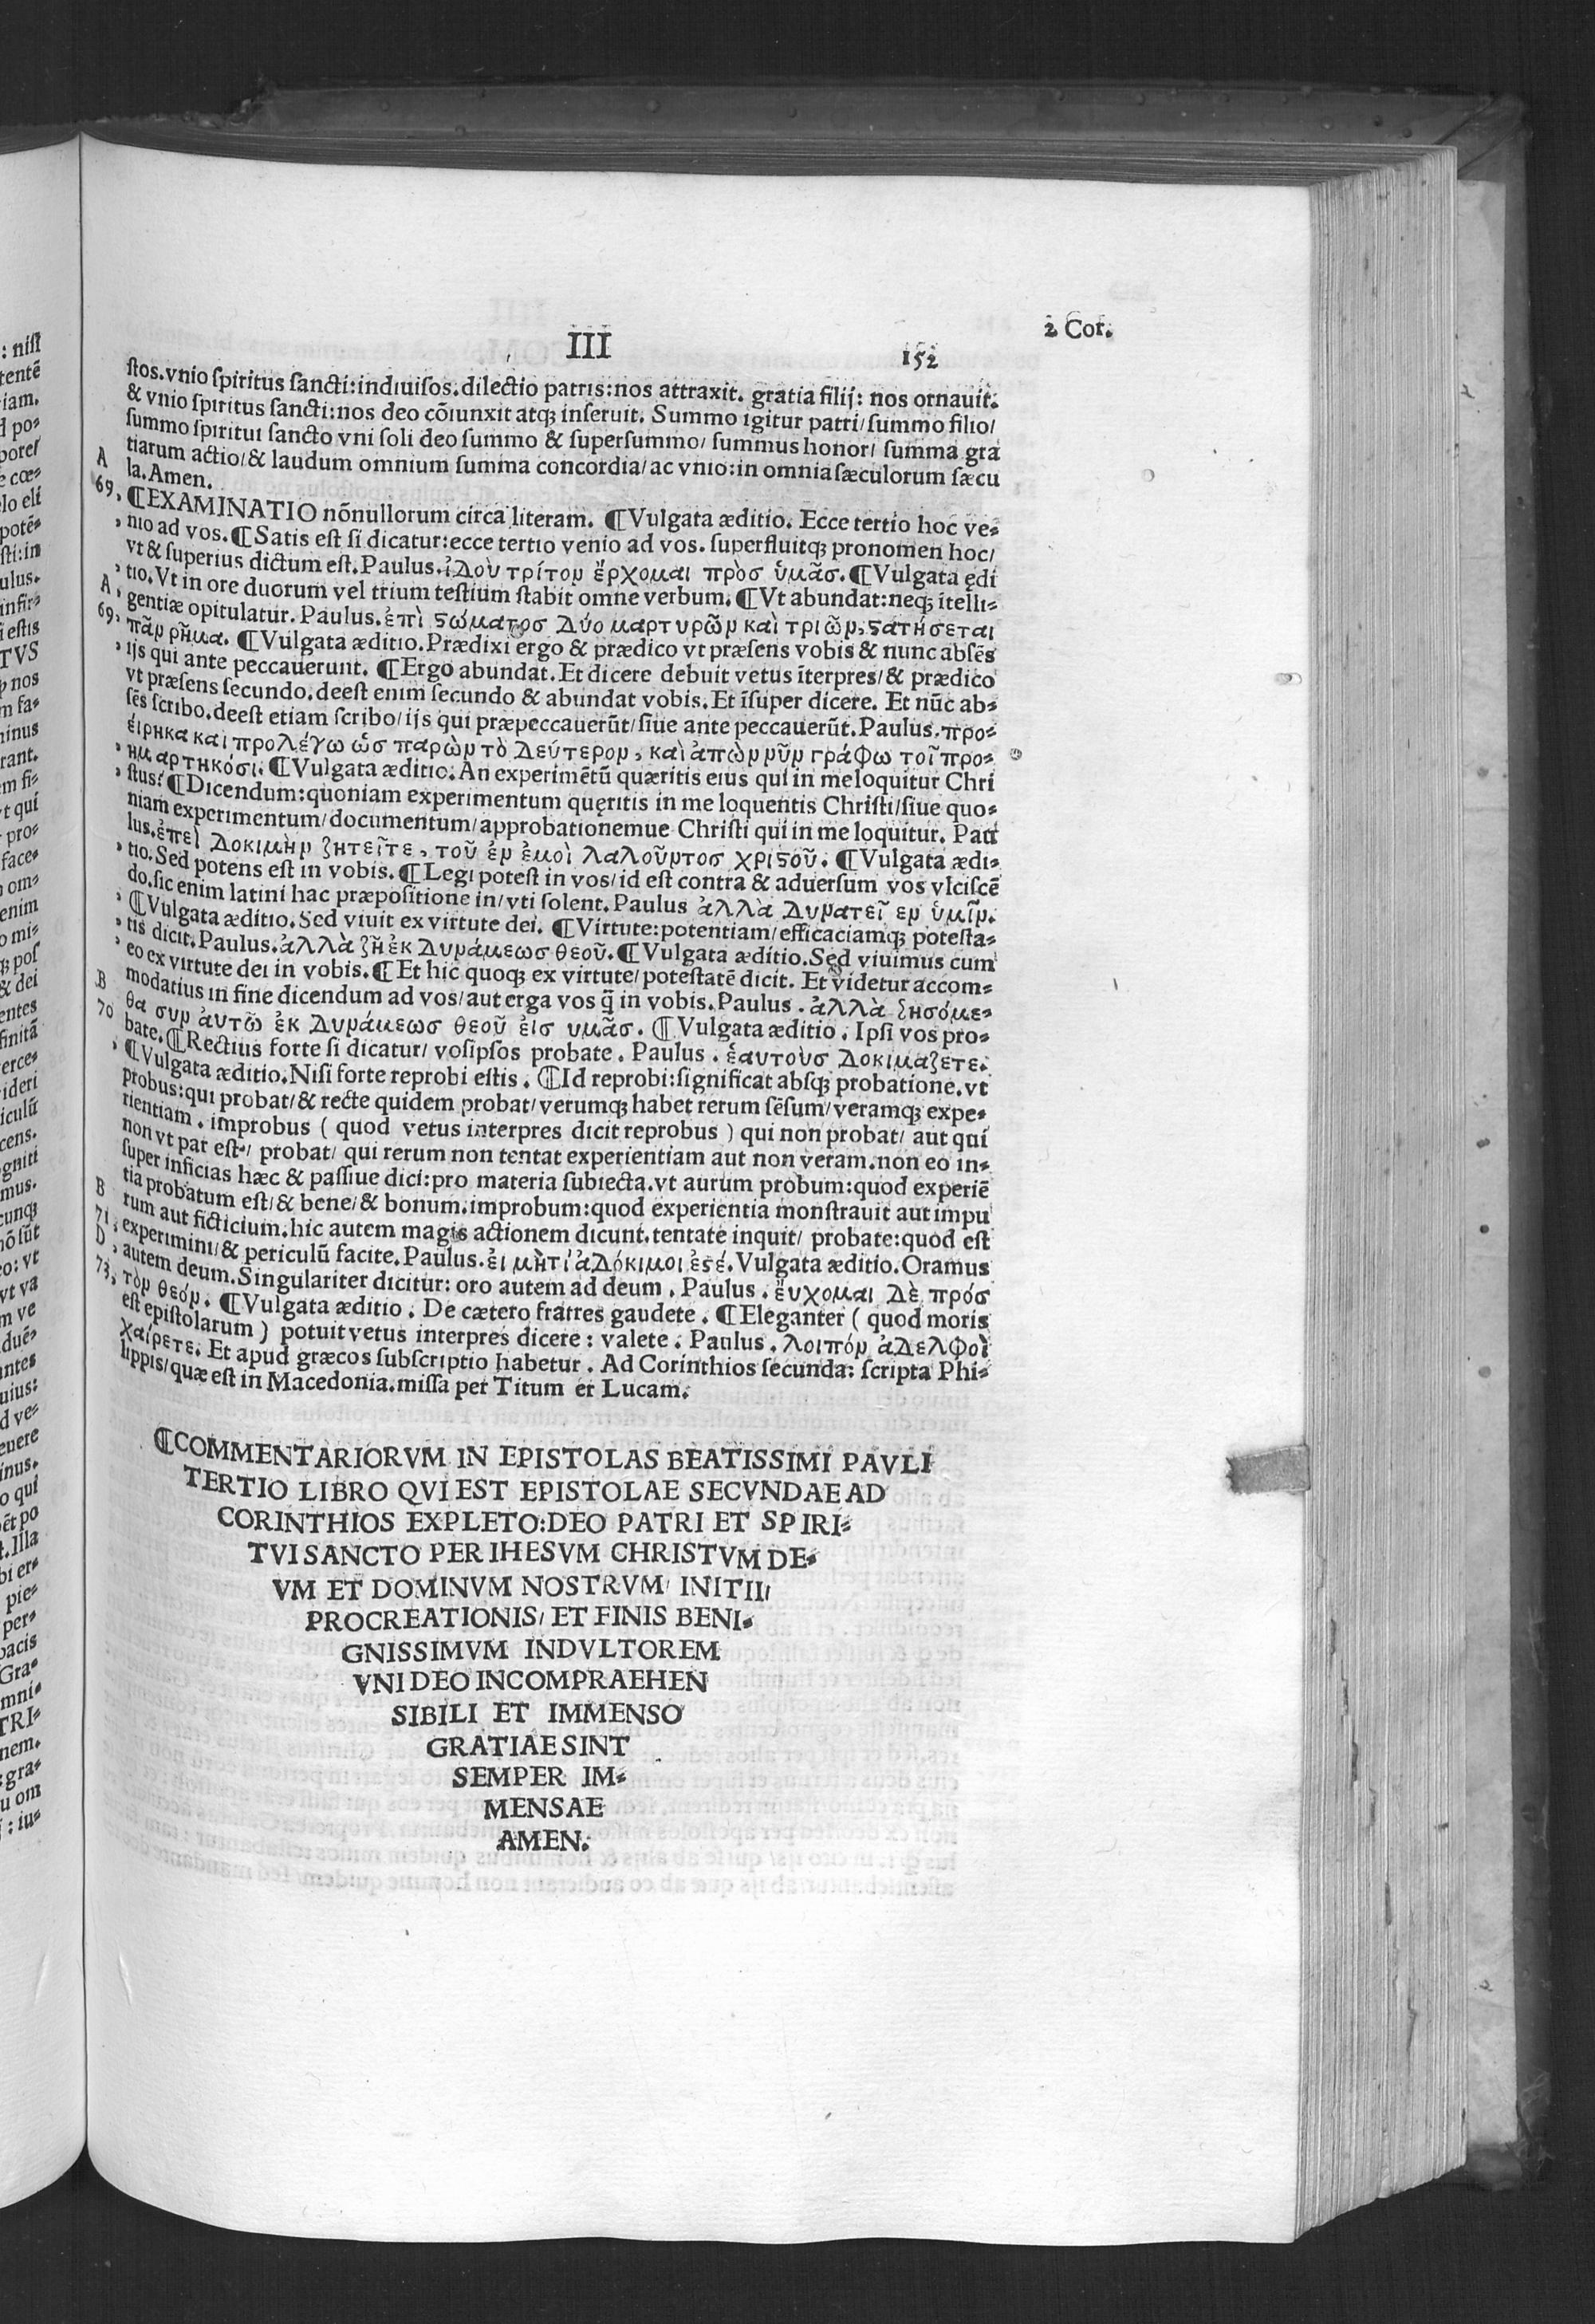 III
152
2 Cor.
ſtos.vnio ſpiritus ſancti:indiuiſos.dilectio patris:nos attraxit. gratia filij: nos ornauit.
& vnio ſpiritus ſancti:nos deo cõiunxit atqꝫ inſeruit. Summo igitur patri/ſummo filio/
ſummo ſpiritui ſancto vni ſoli deo ſummo & ſuperſummo/ ſummus honor/ ſumma gra
tiarum actio/& laudum omnium ſumma concordia/ac vnio:in omnia ſæculorum ſæcu
A la.Amen.
69, ¶EXAMINATIO nõnullorum circa literam. ¶Vulgata æditio. Ecce tertio hoc ve-
, nio ad vos.¶Satis eſt ſi dicatur:ecce tertio venio ad vos. ſuperfluitqꝫ pronomen hoc/
vt & ſuperius dictum eſt.Paulus.ἰδοὺ τρίτον ἔρχομαι πρὸσ ὑμᾶσ.¶Vulgata ędi
, tio.Vt in ore duorum vel trium teſtium ſtabit omne verbum.¶Vt abundat:neqꝫ ĩtelli-
A, gentiæ opitulatur.Paulus.ἐπὶ ϛώματοσ δύο μαρτυρῶν καὶ τριῶν,ϛατήσεται
69, πᾶν ρῆμα. ¶Vulgata æditio.Prædixi ergo & prædico vt præſens vobis & nunc abſẽs
, ijs qui ante peccauerunt. ¶Ergo abundat.Et dicere debuit vetus ĩterpres/& prædico
vt præſens ſecundo.deeſt enim ſecundo & abundat vobis.Et ĩſuper dicere. Et nũc ab-
ſẽs ſcribo.deeſt etiam ſcribo/ijs qui præpeccauerũt/ſiue ante peccauerũt.Paulus.προ-
έιρηκα καὶ προλέγω ὡσ παρὼν τὸ δεύτερον, καὶ ἀπὼν νῦν γράφω τοῖ προ-
, ημαρτηκόσι.¶Vulgata æditio.An experimẽtũ quæritis eius qui in me loquitur Chri
, ſtus?¶Dicendum:quoniam experimentum quęritis in me loquentis Chriſti/ſiue quo-
niam experimentum/documentum/approbationemue Chriſti qui in me loquitur. Pau
lus.ἐπεὶ δοκιμὴν ζητεῖτε, τοῦ ἐν ἐμοὶ λαλοῦντοσ χριϛοῦ. ¶Vulgata ædi-
, tio.Sed potens eſt in vobis.¶Legi poteſt in vos/id eſt contra & aduerſum vos vlciſcẽ
do.ſic enim latini hac præpoſitione in/vti ſolent.Paulus ἀλλὰ δυνατεῖ εν ὑμῖν.
, ¶Vulgata æditio.Sed viuit ex virtute dei. ¶Virtute:potentiam/efficaciamqꝫ poteſta-
, tis dicit.Paulus.ἀλλὰ ζῆ ἐκ δυνάμεωσ θεοῦ.¶Vulgata æditio.Sed viuimus cum
, eo ex virtute dei in vobis.¶Et hic quoqꝫ ex virtute/poteſtatẽ dicit. Et videtur accom-
B modatius in fine dicendum ad vos/aut erga vos q̃ in vobis.Paulus . ἀλλὰ ζησόμε-
70 θα συν ἀυτῶ ἐκ δυνάμεωσ θεοῦ ἐισ υμᾶσ. ¶Vulgata æditio. Ipſi vos pro-
bate.¶Rectius forte ſi dicatur/ voſipſos probate. Paulus . ἑαυτοὺσ δοκιμαζετε.
, ¶Vulgata æditio.Niſi forte reprobi eſtis. ¶Id reprobi:ſignificat abſqꝫ probatione.vt
probus:qui probat/& recte quidem probat/verumqꝫ habet rerum ſẽſum/veramqꝫ expe-
rientiam. improbus ( quod vetus interpres dicit reprobus ) qui non probat/ aut qui
non vt par eſt/ probat/ qui rerum non tentat experientiam aut non veram.non eo in-
ſuper inficias hæc & paſſiue dici:pro materia ſubiecta.vt aurum probum:quod experiẽ
tia probatum eſt/& bene/& bonum.improbum:quod experientia monſtrauit aut impu
B rum aut ficticium.hic autem magis actionem dicunt.tentate inquit/ probate:quod eſt
71, experimini/& periculũ facite.Paulus.ἐι μὴτί ἀδόκιμοι ἐϛέ.Vulgata æditio.Oramus
D, autem deum.Singulariter dicitur: oro autem ad deum . Paulus . ἔυχομαι δὲ πρόσ
73, τὸν θεόν. ¶Vulgata æditio . De cætero fratres gaudete . ¶Eleganter ( quod moris
eſt epiſtolarum ) potuit vetus interpres dicere : valete . Paulus . λοιπόν ἀδελφοὶ
χαίρετε. Et apud græcos ſubſcriptio habetur . Ad Corinthios ſecunda: ſcripta Phi-
lippis/quæ eſt in Macedonia.miſſa per Titum et Lucam.
¶COMMENTARIORVM IN EPISTOLAS BEATISSIMI PAVLI
TERTIO LIBRO QVI EST EPISTOLAE SECVNDAE AD
CORINTHIOS EXPLETO:DEO PATRI ET SPIRI-
TVI SANCTO PER IHESVM CHRISTVM DE-
VM ET DOMINVM NOSTRVM/ INITII/
PROCREATIONIS/ ET FINIS BENI-
GNISSIMVM INDVLTOREM
VNI DEO INCOMPRAEHEN
SIBILI ET IMMENSO
GRATIAE SINT
SEMPER IM-
MENSAE
AMEN.